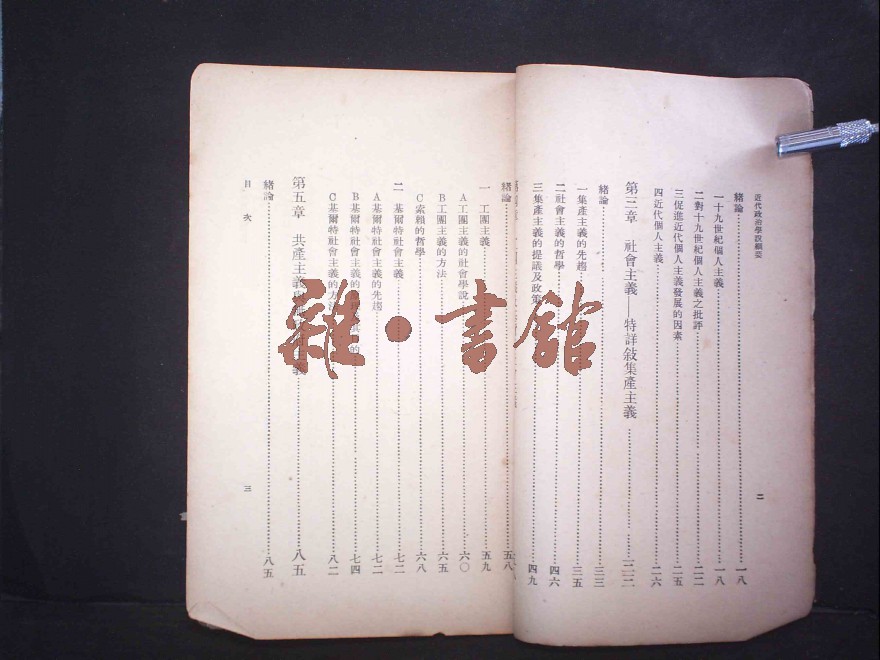 近代政治學說綱要
二
緒論 一八
一十九世紀個人主義 一八
二對十九世紀個人主義之批評 二二
三促進近代個人主義發展的因素 二五
四近代個人主義 二六
第三章 社會主義——特詳敘集產主義 三三
緒論 三三
一集產主義的先趨 三五
二社會主義的哲學 四六
三集產主義的提議及政策 四九
緒論 五八
一 工團主義 五九
A工團主義的社會學說 六〇
B工團主義的方法 六五
C索賴的哲學 六八
二 基爾特社會主義 七二
A基爾特社會主義的先趨 七二
B基爾特社會主義的 的 七四
C基爾特社會主義的方法 八二
第五章 共產主義與 主義 八五
緒論 八五
目次
三
雜·書館